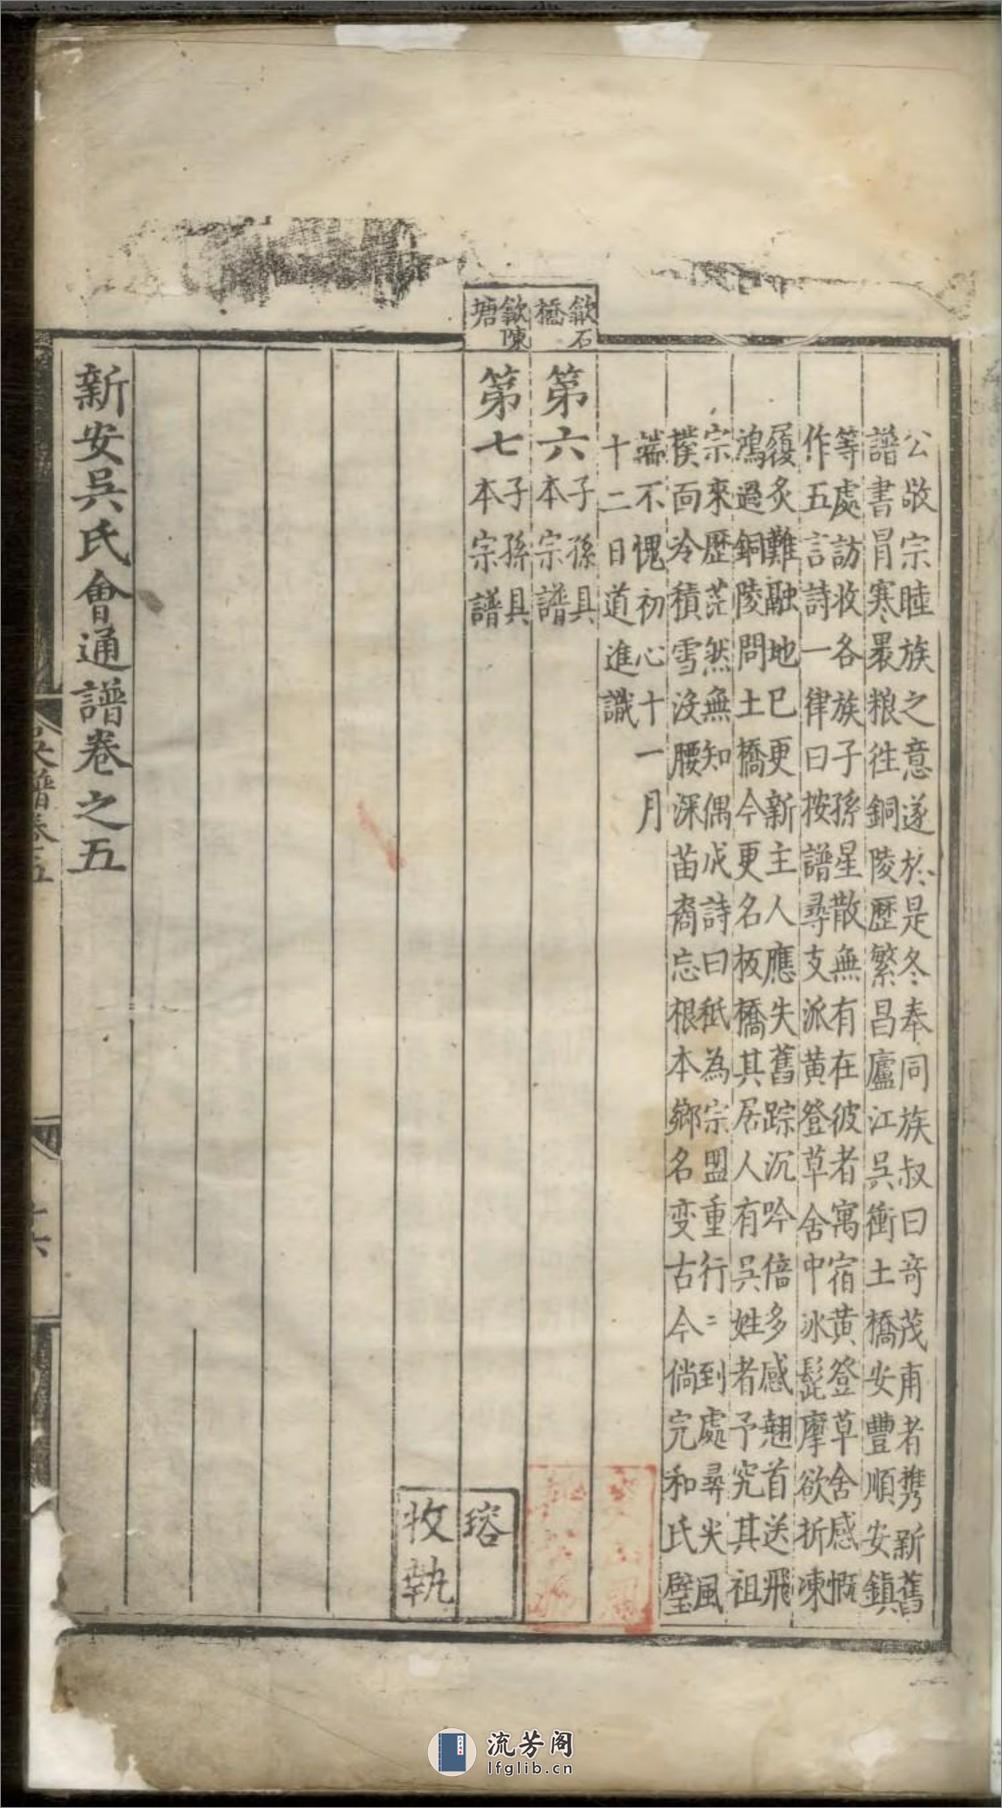 公敬宗睦族之意遂於是冬奉同族叔曰竒茂甫者携新舊
譜書冒寒褁粮徃銅陵歷繁昌廬江吳衝土橋安豐順安鎮
等處訪收各族子孫星散無有在彼者寓宿黄登草舍感慨
作五言詩一律曰按譜尋支派黄登草舍中冰髭摩欲折凍
履炙難融地已更新主人應失舊踪沉吟倍多感翹首送飛
鴻過銅陵問土橋今更名板橋其居人有吳姓者予究其祖
宗來歷茫然無知偶成詩曰秖為宗盟重行二到處尋尖風
撲面冷積雪沒腰深苗裔忘根本鄉名变古今倘完和氏璧
端不愧初心十一月
十二日道進識
歙石橋
第六子孫具本宗譜
歙陳塘
第七子孫具本宗譜
瑢
收執
新安吳氏會通譜卷之五
流芳阁
lfglib.cn